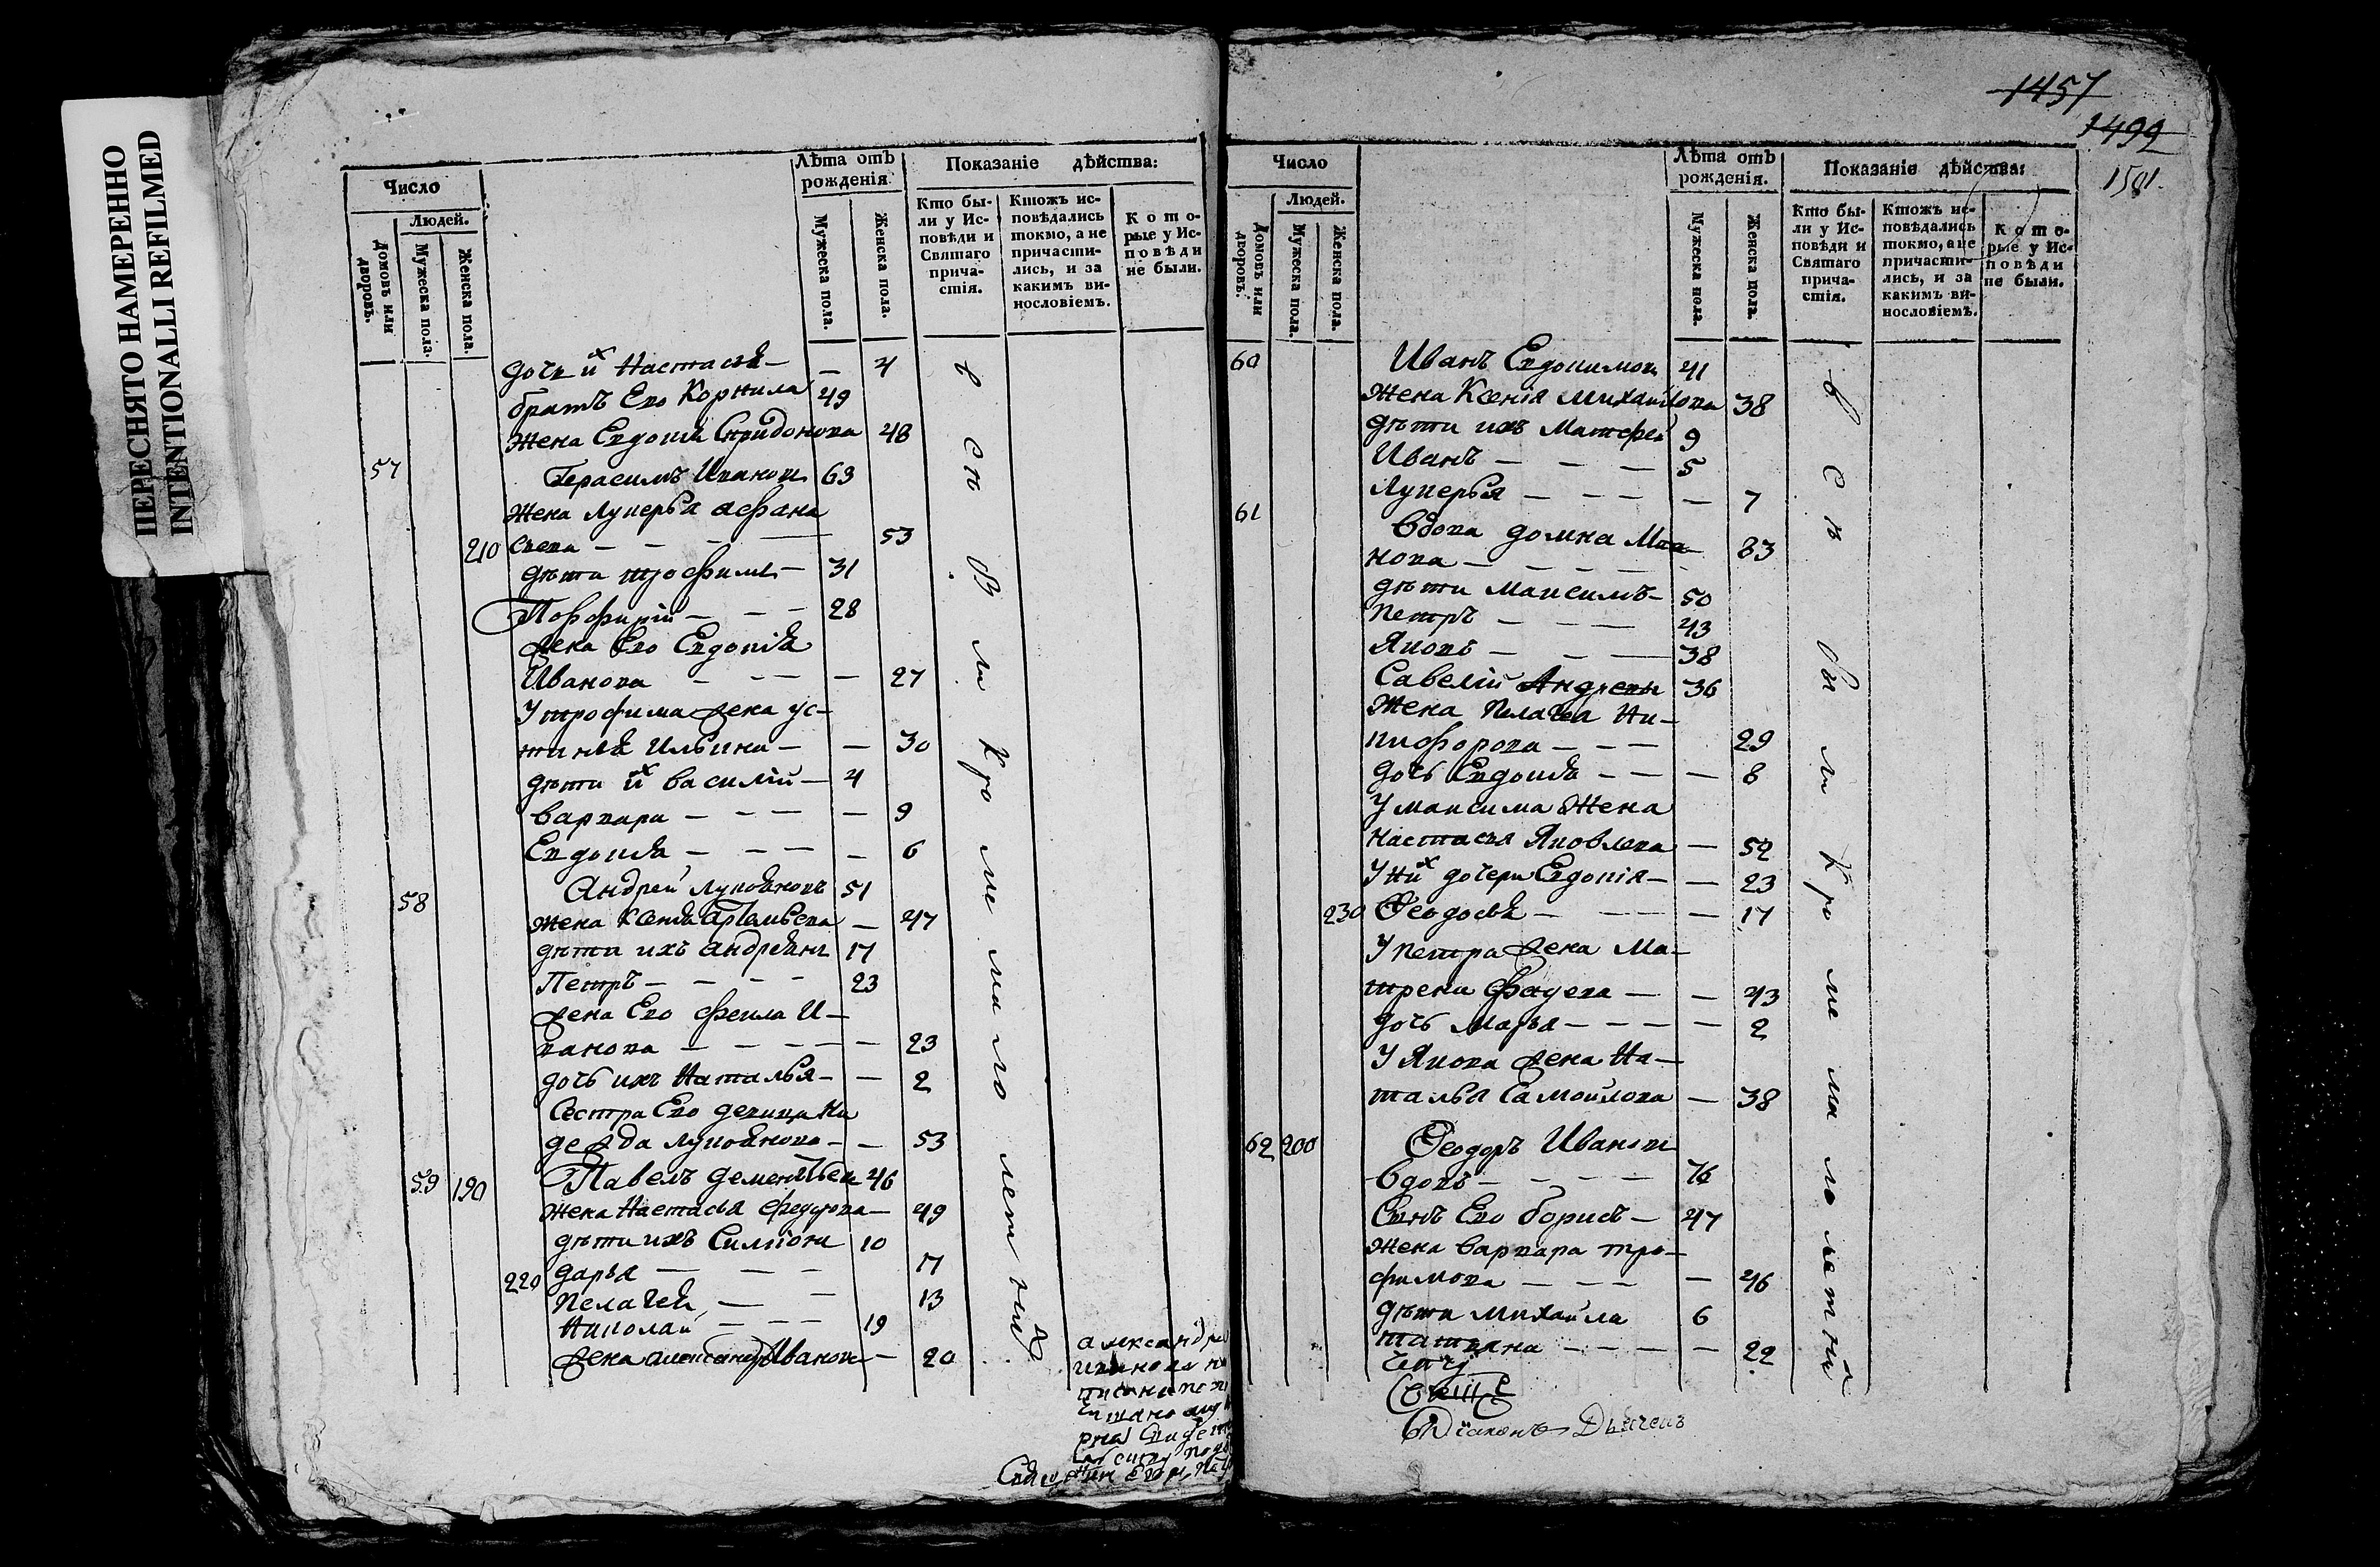 ПЕРЕСНЯТО НАМЕРЕННО
INTENTIONALLI REFILMED
Число
Людей.
Домовъ или дворовъ.
Мужеска пола.
Женска пола.
Лѣта отъ рожденія
Мужеска пола.
Женска пола.
Показаніе дѣйства:
Кто бы-
ли у Ис-
повѣди и
Святаго
прича-
стія.
Ктожъ ис-
повѣдались
токмо, а не
причасти-
лись, и за
какимъ ви-
нословіемъ.
Кото-
рые у Ис-
повѣди
не были.
дочь их Настасья — — 4
братъ Ево Корнила 49
жена Евдокия Спиридонова 48
57 Герасимъ Иванов 63
жена Лукерья Афана
210 сьева — — — 53
дѣти трофимъ — 31
Порфирій — — — 28
жена Ево Евдокия
Иванова — — — — 27
У трофима жена ус-
тинья Ильина — — 30
дѣти их василий — 4
варвара — — — — 9
Евдокия — — — — 6
58 Андрей лукьяновъ 51
жена Ксенья — 47
дѣти ихъ андреянъ 17
Петръ — — — — 23
жена Ево фекла И-
ванова — — — — — 23
дочь ихъ Наталья — — 2
Сестра Ево девица На
дежда лукьянова — — 53
59 190 Павелъ дементьев 46
жена Настасья федорова — 49
дѣти ихъ Симион 10
220 дарья — — — 17
пелагея — — 13
николай — — — 19
жена александра Иванова — 20
всѣ были кроме малолетных
александра
1457
1499
1501.
Число
Людей.
Домовъ или дворовъ.
Мужеска пола.
Женска пола.
Лѣта отъ рожденія.
Мужеска пола.
Женска пола.
Показаніе дѣйства:
Кто бы-
ли у Ис-
повѣди и
Святаго
прича-
стія.
Ктожъ ис-
повѣдались
токмо, а не
причасти-
лись, и за
какимъ ви-
нословіемъ.
Кото-
рые у Ис-
повѣди
не были.
60 Иванъ Евдокимов 41
жена Ксенія Михайлова 38
дѣти ихъ Матфей 9
Иванъ — — — 5
Лукерья — — — — 7
61 вдова домна
нова — — — — — 83
дѣти Максимъ — 50
Петръ — — — 43
Яковъ — — — 38
Савелій Андреевъ 36
жена Пелагея Ни-
кифорова — — — 29
дочь Евдокия — — — 8
У максима жена
настасья Яковлева — 52
У них дочери Евдокия — — 23
230 Феодосья — — — — 17
У петра жена Ма-
трена Фадеева — — 43
дочь Марья — — — — 2
У Якова жена На-
талья Самойлова — 38
62 200 Феодоръ Иванов
вдовъ — — — — 76
Сынъ Ево борисъ — 47
жена варвара тро-
фимова — — — — 46
дѣти михайла 6
татьяна — — — — 22
всѣ были кроме малолетных